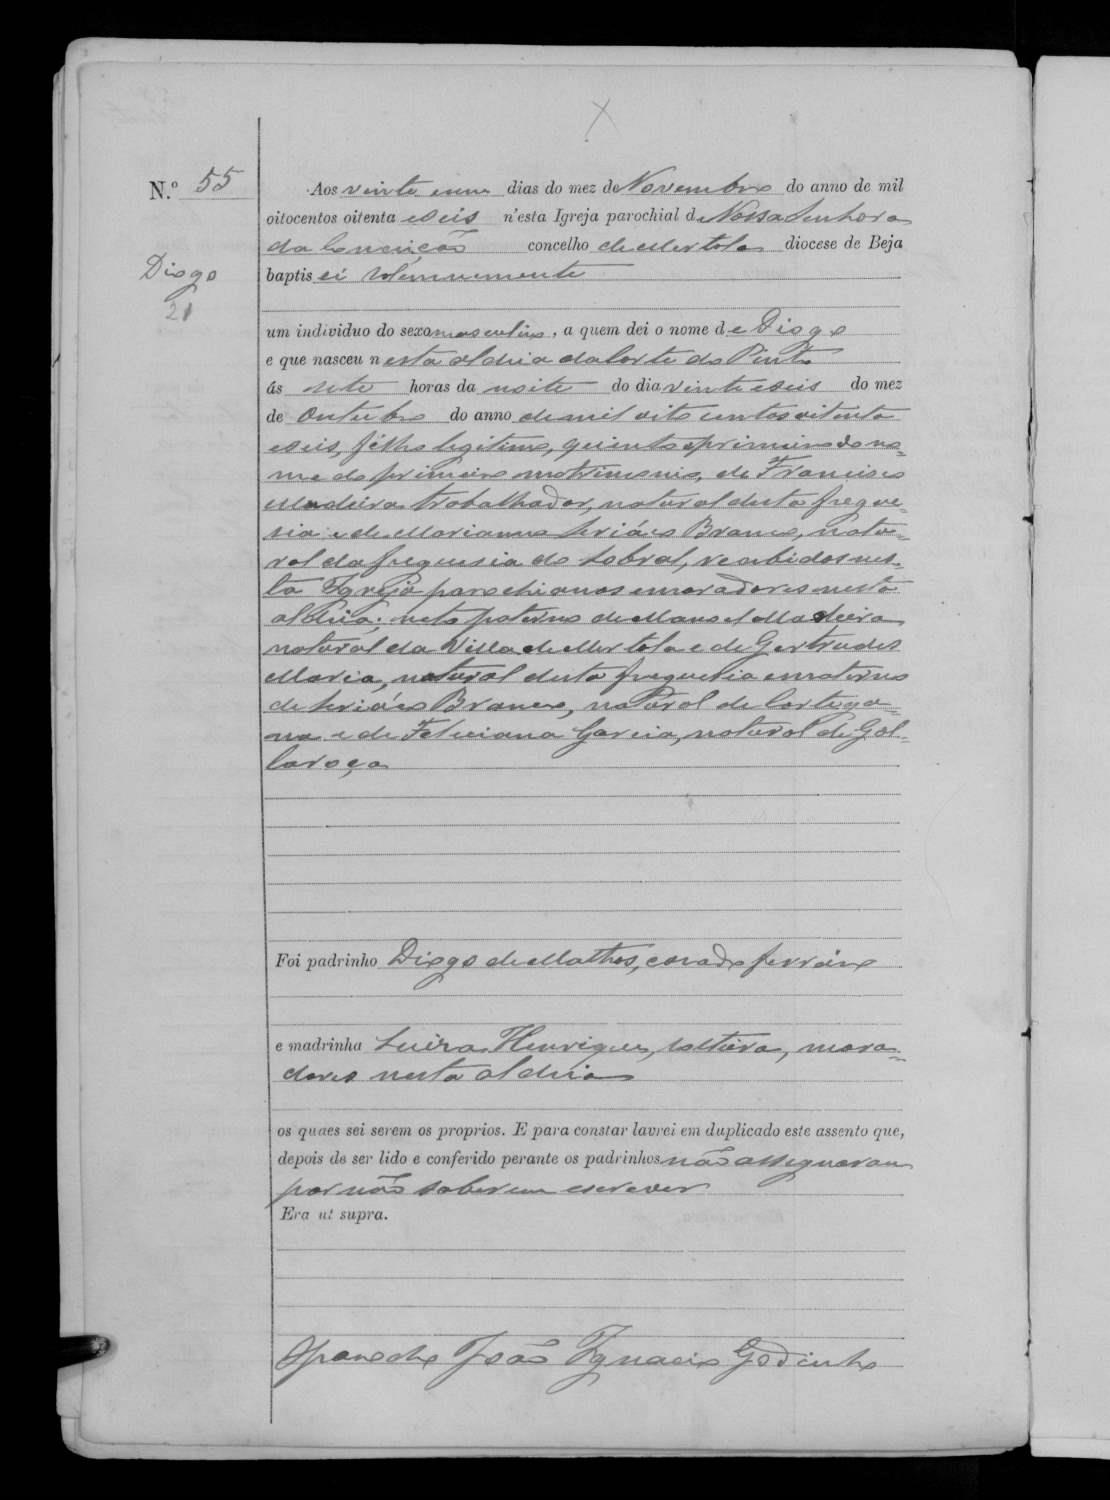 N.º 55
Diogo
21
Aos vinte e um dias do mez de Novembro do anno de mil
oitocentos oitenta e seis n'esta Igreja parochial de Nossa Senhora
da Conceição concelho de Mertola diocese de Beja
baptisei solemnemente
um individuo do sexo masculino, a quem dei o nome de Diogo
e que nasceu nesta aldeia da Corte do Pinto
ás sete horas da noite do dia vinte e seis do mez
de Outubro do anno de mil oito centos oitenta
e seis, filho legitimo, quinto e primeiro do no-
me do primeiro matrimonio, de Francisco
Madeira trabalhador, natural desta fregue-
sia e de Marianna Branco, natu-
ral da freguesia do Sobral, recebidos nes-
ta Igreja parochianos e moradores nesta
aldeia; neto paterno de Manoel Madeira
natural da Villa de Mertola e de Gertrudes
Maria, natural desta freguesia e materno
de Branco, natural de Cortega-
na e de Feliciana Garcia, natural de Gal-
laroça
Foi padrinho Diogo de Mathos, casado
e madrinha Luiza Henriques, solteira, mora-
dores nesta aldeia
os quaes sei serem os proprios. E para constar lavrei em duplicado este assento que,
depois de ser lido e conferido perante os padrinhos não assignaram
por não saberem escrever
Era ut supra.
O parocho João Ignacio Godinho